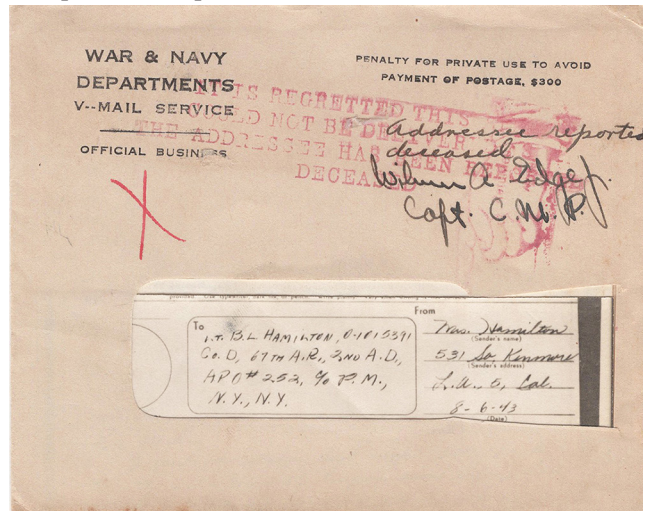 WAR & NAVY
DEPARTMENTS
V--MAIL SERVICE
OFFICIAL BUSINESS
PENALTY FOR PRIVATE USE TO AVOID
PAYMENT OF POSTAGE, $300
IT IS REGRETTED THIS
COULD NOT BE
THE ADDRESSEE HAS BEEN
DECEASED
Addressee reported
deceased
A. Edge Jr.
Capt. C.M.P.
To
LT. B.L. HAMILTON, O-1015391
CO. D, 67TH A.R., 2ND A.D.,
APO # 252, % P.M.,
N.Y., N.Y.
From
Mrs. Hamilton
(Sender's name)
531 So. Kenmore
(Sender's address)
L.A. 5, Cal.
8-6-43
(Date)